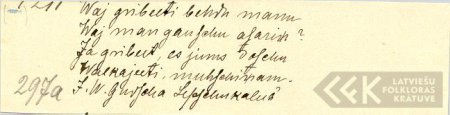 1211
Waj gribeeti behdu manu
Waj man gauschu asariņ?
Ja gribeet es jums došchu
Walkajeeti, muhschiņam.
F. W. Gudscha Lepschukalnā
297a
LATVIEŠU
FOLKLORAS
KRĀTUVE